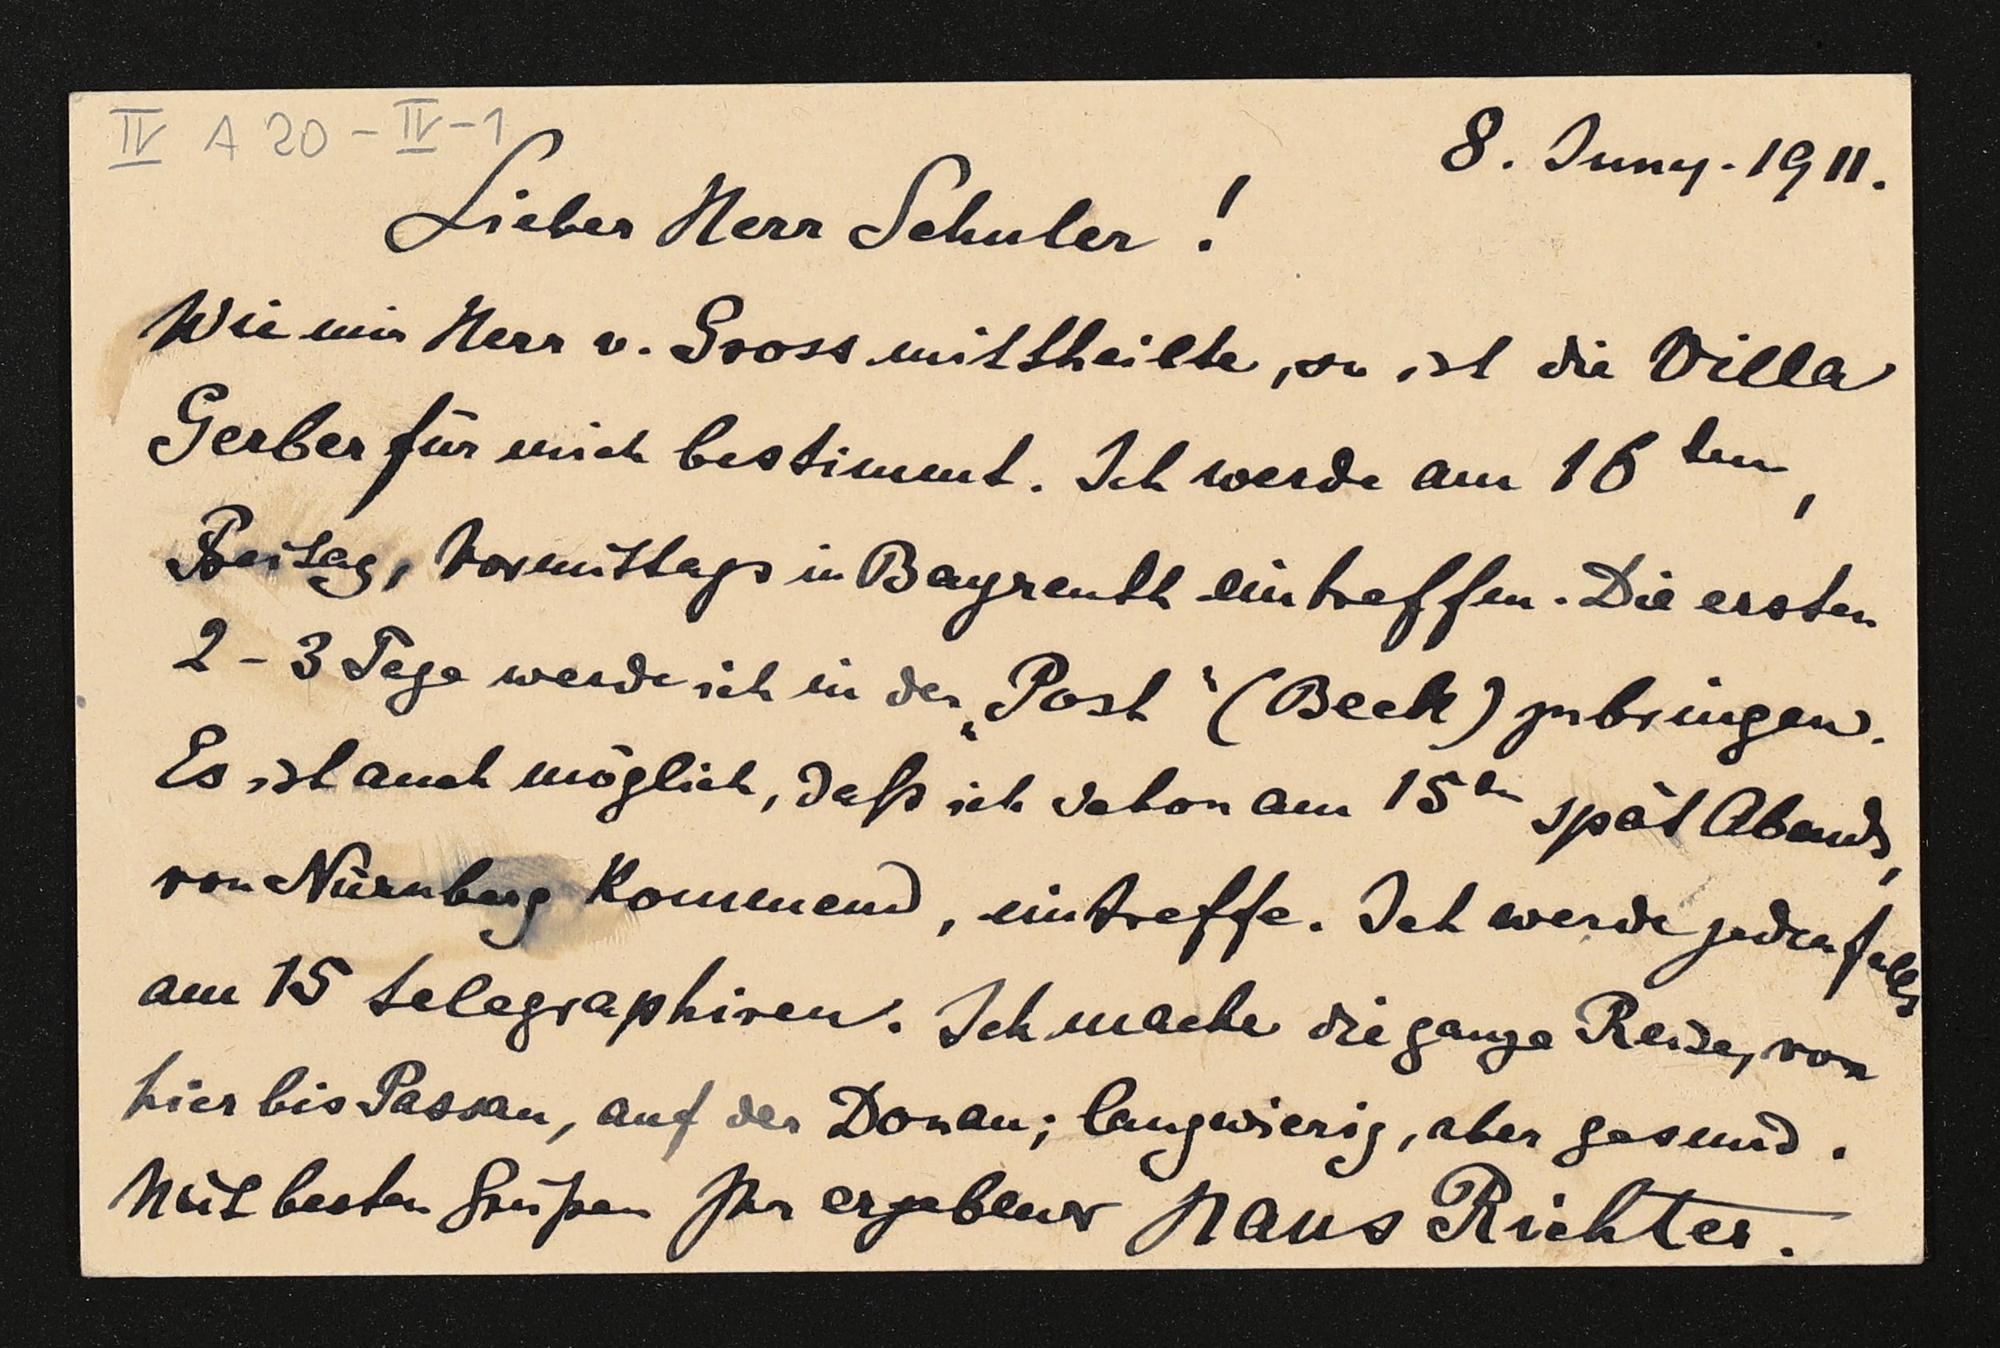 IV A 20-IV-1
8. Juny. 1911.
Lieber Herr Schuler!
Wie mir Herr v. Gross mittheilte, so ist die Villa
Gerber für mich bestimmt. Ich werde am 16ten,
Freitag, Vormittags in Bayreuth eintreffen. Die ersten
2-3 Tage werde ich in der „Post“ (Beck) zubringen.
Es ist auch möglich, daß ich schon am 15ten spät Abends,
von Nürnberg kommend, eintreffe. Ich werde jedenfalls
am 15 telegraphiren. Ich mache die ganze Reise, von
hier bis Passau, auf der Donau; langwierig, aber gesund.
Mit besten Grüßen Ihr ergebener Hans Richter.